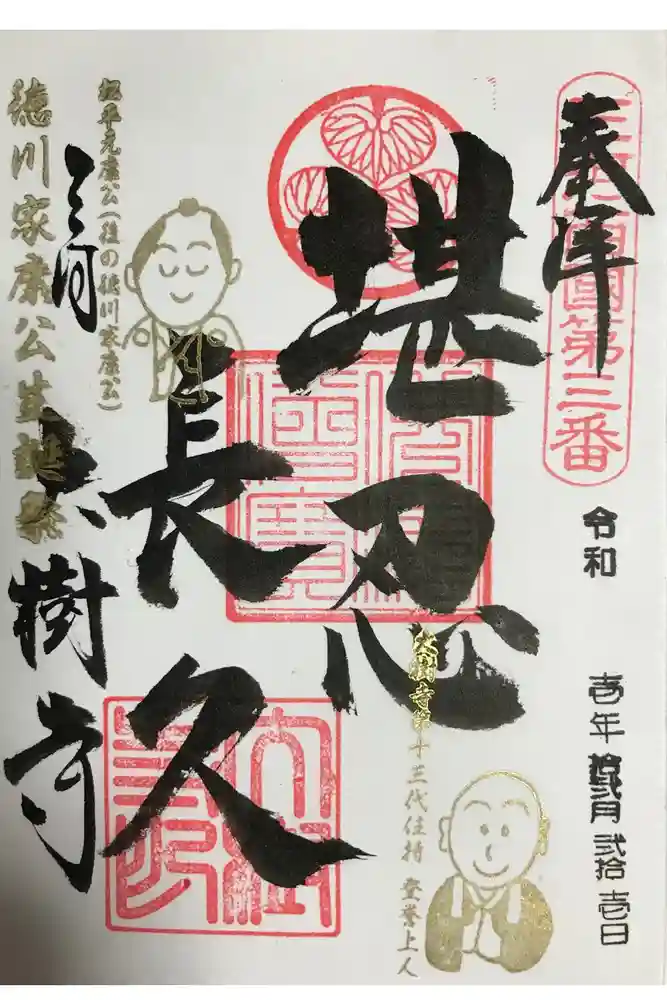 奉拝
三河西国第三番
令和 壱年 拾弐月 弐拾 壱日
堪忍
長久
大樹寺第十三代住持 登誉上人
松平元康公(後の徳川家康公)
三河
大樹寺
徳川家康公生誕祭